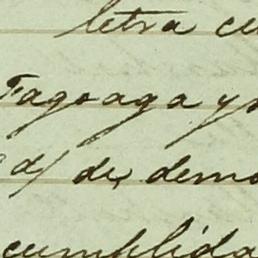 letra cu
Fagoaga y s
d/ de, demo
cumplida